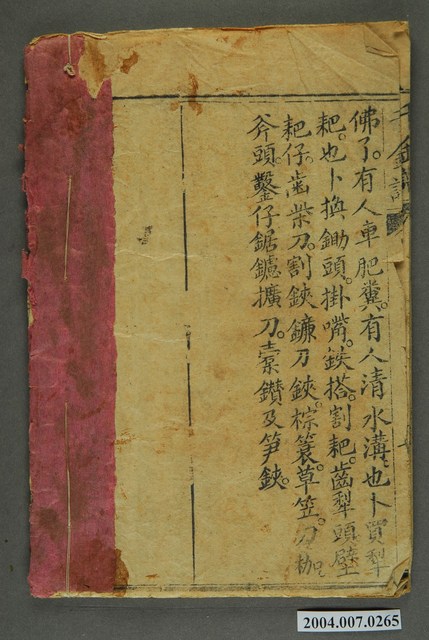 千金譜
佛了。有人車肥糞。有人清水溝。也卜買犁
耙。也卜換鋤頭。掛嘴。鋏搭。割耙。齒犁頭壁
耙仔。齒柴刀。割鋏鐮刀鋏。棕簑。草笠。刀枷。
斧頭。鑿仔鋸鑢擴刀。鑽及笋鋏。
2004.007.0265